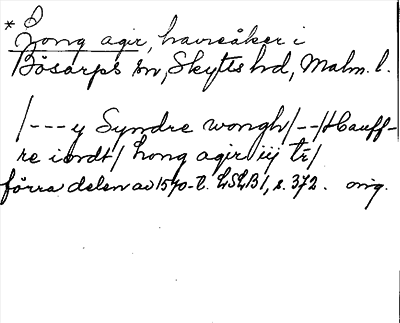 * Long agir, havreåker i
Bösarps sn, Skytts hd, Malm. l.
/--- y Syndre wongh/--/Hauff-
re iordt/ long agir iij tr/
förra delen av 1570-t. LSLB1, s. 372. orig.